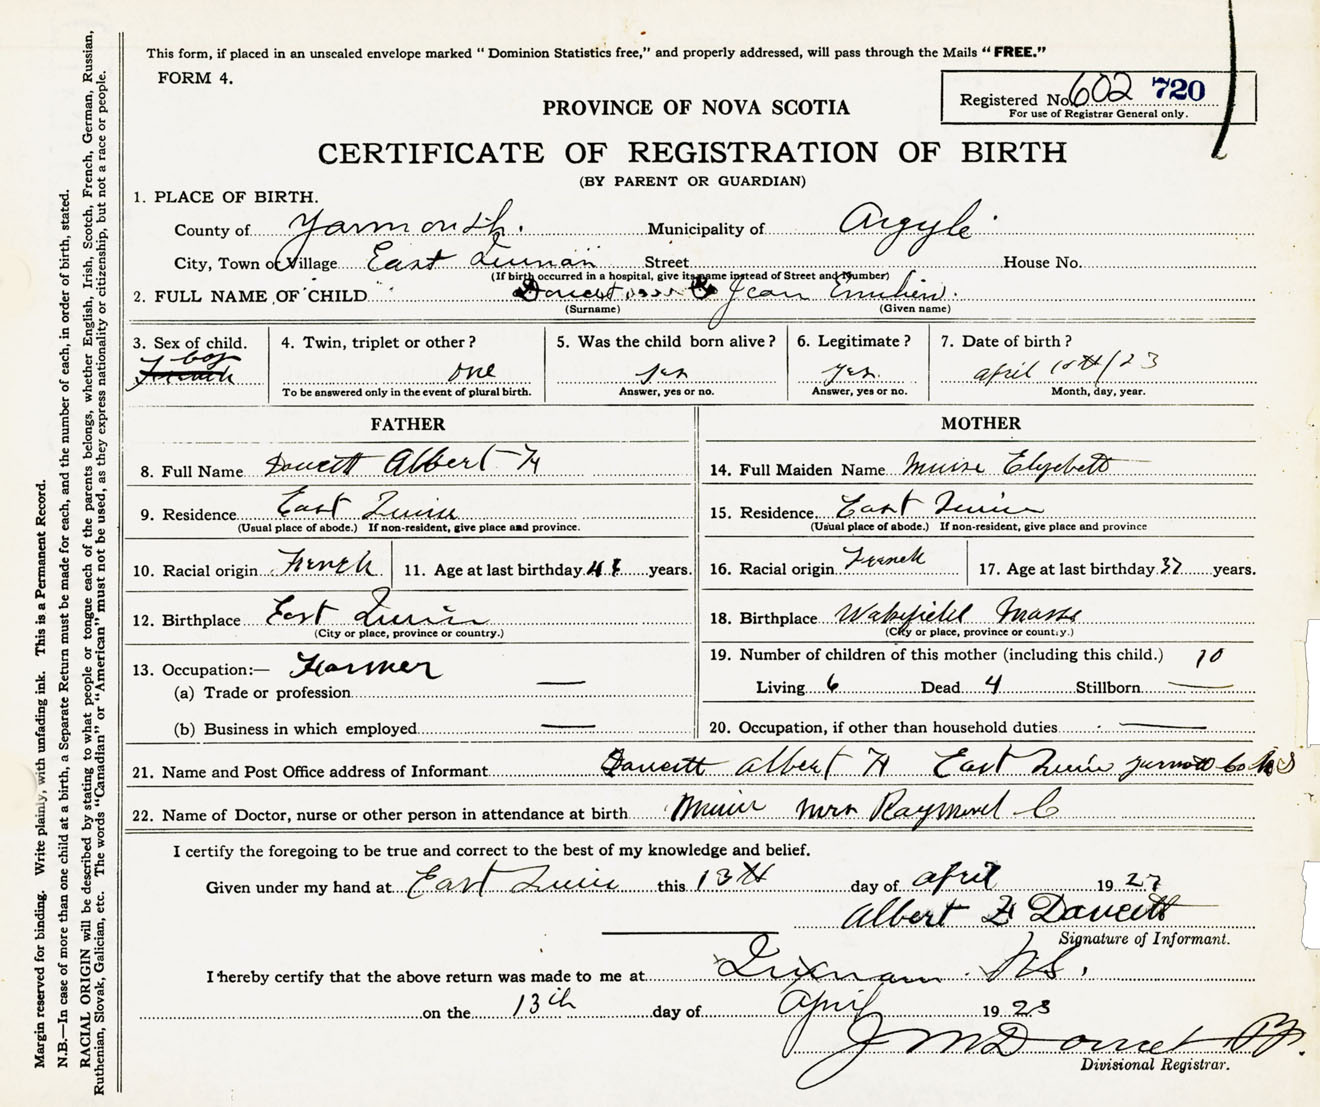 This form, if placed in an unsealed envelope marked “ Dominion Statistics free,” and properly addressed, will pass through the Mails “ FREE.”
FORM 4.
Registered No. 602 720
For use of Registrar General only.
PROVINCE OF NOVA SCOTIA
CERTIFICATE OF REGISTRATION OF BIRTH
(BY PARENT OR GUARDIAN)
1. PLACE OF BIRTH.
County of Yarmouth. Municipality of Argyle
City, Town or Village East Street House No.
(If birth occurred in a hospital, give its name instead of Street and Number)
2. FULL NAME OF CHILD Doucet Jean
(Surname) (Given name)
3. Sex of child. boy French
4. Twin, triplet or other ? one
To be answered only in the event of plural birth.
5. Was the child born alive ? yes
Answer, yes or no.
6. Legitimate ? yes.
Answer, yes or no.
7. Date of birth ? april 10th/23
Month, day, year.
FATHER
8. Full Name Doucett Albert H
9. Residence East
(Usual place of abode.) If non-resident, give place and province.
10. Racial origin French 11. Age at last birthday years.
12. Birthplace East
(City or place, province or country.)
13. Occupation:— Farmer
(a) Trade or profession —
(b) Business in which employed —
MOTHER
14. Full Maiden Name Muise Elyzbett
15. Residence East
(Usual place of abode.) If non-resident, give place and province
16. Racial origin French 17. Age at last birthday 37 years.
18. Birthplace Wakefield Mass
(City or place, province or country.)
19. Number of children of this mother (including this child.) 10
Living 6 Dead 4 Stillborn —
20. Occupation, if other than household duties —
21. Name and Post Office address of Informant Doucett Albert H East Co N S
22. Name of Doctor, nurse or other person in attendance at birth Mrs Raymond C
I certify the foregoing to be true and correct to the best of my knowledge and belief.
Given under my hand at East this 13th day of april 19
Albert H Doucett
Signature of Informant.
I hereby certify that the above return was made to me at N.S.
on the 13th day of April 19 23
J M Doucet
Divisional Registrar.
Margin reserved for binding. Write plainly, with unfading ink. This is a Permanent Record.
N.B.—In case of more than one child at a birth, a Separate Return must be made for each, and the number of each, in order of birth, stated.
RACIAL ORIGIN will be described by stating to what people or tongue each of the parents belongs, whether English, Irish, Scotch, French, German, Russian,
Ruthenian, Slovak, Galician, etc. The words “Canadian” or “American” must not be used, as they express nationality or citizenship, but not a race or people.